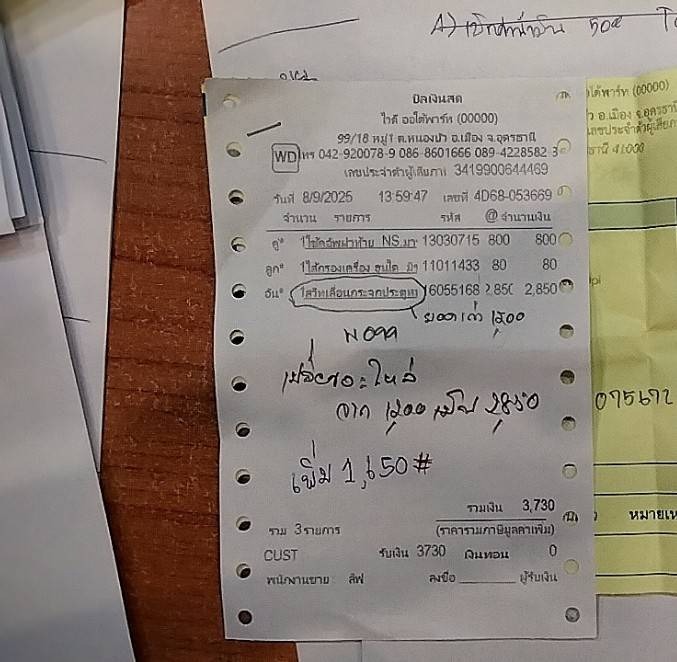 A) เบิกค่าน้ำมัน 500
บิลเงินสด
ไวดี ออโต้พาร์ท (00000)
99/18 หมู่1 ต.หนองบัว อ.เมือง จ.อุดรธานี
WD โทร 042-920078-9 086-8601666 089-4228582 3
เลขประจำตัวผู้เสียภาษี 3419900644469
วันที่ 8/9/2025 13:59:47 เลขที่ 4D68-053669
จำนวน รายการ รหัส @ จำนวนเงิน
คู่* 1 NS 13030715 800 800
ลูก* 1ไส้กรองเครื่อง 11011433 80 80
อัน* 1สวิทเลื่อนกระจกประตู 16055168 2,850 2,850
ยอดเก่า 1,200
เปลี่ยนอะไหล่
จาก 1,200 เป็น 2,850
เพิ่ม 1,650 #
รวมเงิน 3,730
รวม 3 รายการ (ราคารวมภาษีมูลค่าเพิ่ม)
CUST รับเงิน 3730 เงินทอน 0
พนักงานขาย ลงชื่อ ผู้รับเงิน
ได้พาร์ท (00000)
ว อ.เมือง จ.อุดรธานี
เลขประจำตัวผู้เสียภา
ธานี 41000
075672
หมายเห